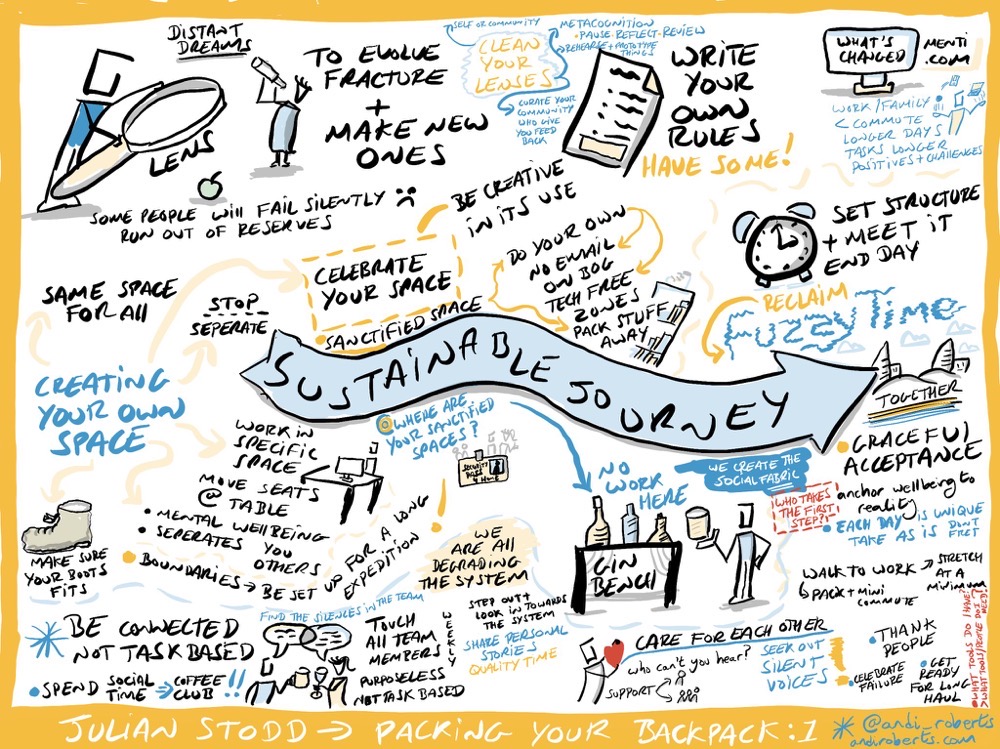 DISTANT
DREAMS
LENS
TO EVOLVE
FRACTURE
+
MAKE NEW
ONES
SELF OR COMMUNITY
CLEAN
YOUR
LENSES
METACOGNITION
• PAUSE • REFLECT • REVIEW
REHEARSE + PROTOTYPE
THINGS
CURATE YOUR
COMMUNITY
WHO GIVE
YOU FEED
BACK
WRITE
YOUR
OWN
RULES
HAVE SOME!
WHAT'S
CHANGED
MENTI
.COM
WORK/FAMILY
< COMMUTE
LONGER DAYS
TASKS LONGER
POSITIVES + CHALLENGES
SOME PEOPLE WILL FAIL SILENTLY
RUN OUT OF RESERVES
BE CREATIVE
IN ITS USE
CELEBRATE
YOUR SPACE
• SANCTIFIED SPACE
DO YOUR OWN
NO EMAIL
ON BOG
TECH FREE
ZONES
PACK STUFF
AWAY
SET STRUCTURE
+ MEET IT
END DAY
RECLAIM
FUZZY TIME
SAME SPACE
FOR All
STOP
SEPERATE
CREATING
YOUR OWN
SPACE
SUSTAINABLE JOURNEY
TOGETHER
WORK IN
SPECIFIC
SPACE
MOVE SEATS
@ TABLE
• MENTAL WELLBEING
SEPERATES YOU
OTHERS
• BOUNDARIES → BE SET UP FOR A LONG
EXPEDITION
WHERE ARE
YOUR SANCTIFIED
SPACES?
SECURITY
PASS
@ HOME
MAKE SURE
YOUR BOOTS
FITS
WE
ARE ALL
DEGRADING
THE SYSTEM
NO
WORK
HERE
GIN
BENCH
WE CREATE THE
SOCIAL FABRIC
WHO TAKES
THE FIRST
STEP?
• GRACEFUL
ACCEPTANCE
anchor wellbeing to
reality
• EACH DAY IS UNIQUE
TAKE AS IS DON'T
FRET
WALK TO WORK → STRETCH
AT A
MINIMUM
↳ PACK + MINI
COMMUTE
BE CONNECTED
NOT TASK BASED
• SPEND SOCIAL
TIME → COFFEE
CLUB !!
FIND THE SILENCES IN THE TEAM
TOUCH
ALL TEAM
MEMBERS
WEEKLY
PURPOSELESS
NOT TASK BASED
STEP OUT +
LOOK IN TOWARDS
THE SYSTEM
SHARE PERSONAL
STORIES
QUALITY TIME
CARE FOR EACH OTHER
Who can't you hear?
SUPPORT
SEEK OUT
SILENT
VOICES
• THANK
PEOPLE
• CELEBRATE
FAILURE
• GET
READY
FOR LONG
HAUL
• WHAT TOOLS DO I HAVE?
JULIAN STODD → PACKING YOUR BACKPACK: 1
@andi_roberts
andiroberts.com